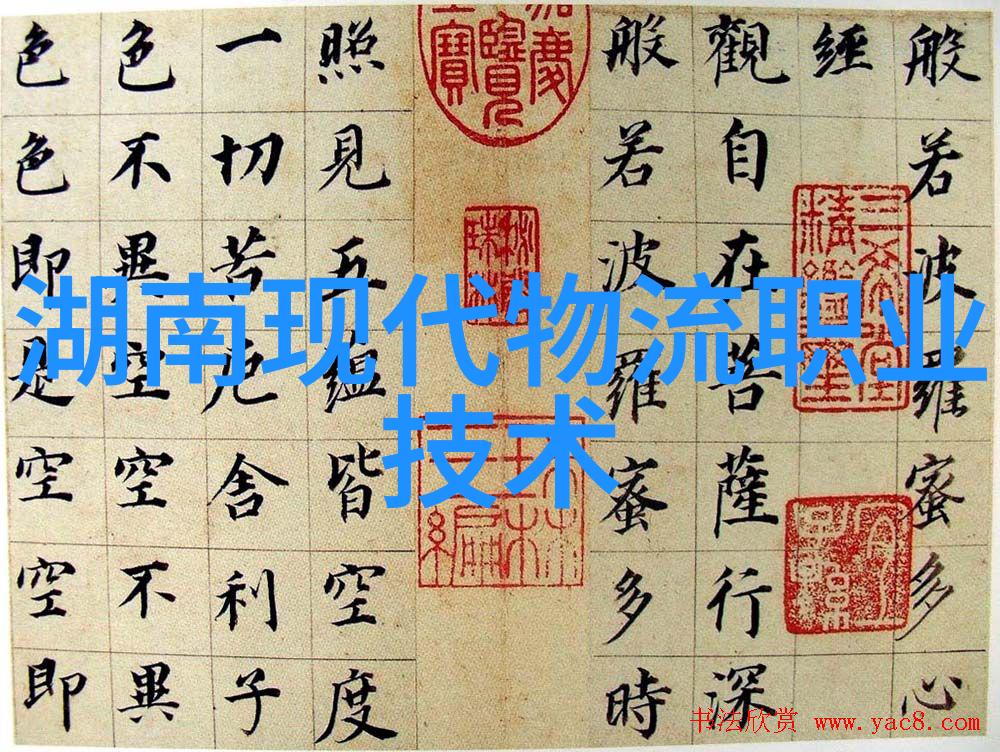 般若波羅蜜多心
經
觀自在菩薩行深
般若波羅蜜多時
照見五蘊皆空度
一切苦厄舍利子
色不異空空不異
色色即是空空即
三希堂精鑑璽
湖南现代物流职业
技术
书法欣赏 www.yac8.com